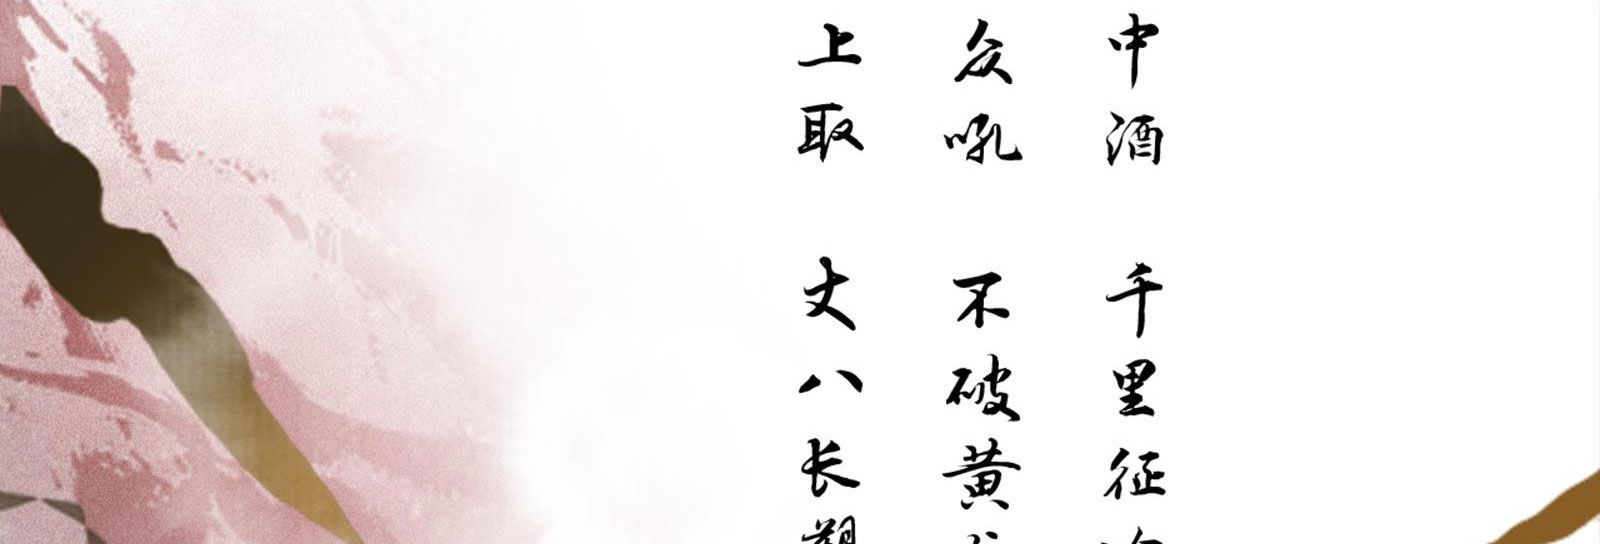 中酒 千里征
众吼 不破黄
上取 丈八长